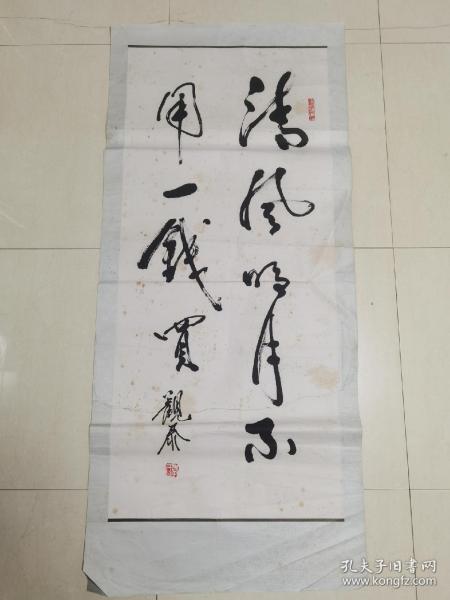 清风明月不
用一钱買
觀泰
孔夫子旧书网
www.kongfz.com